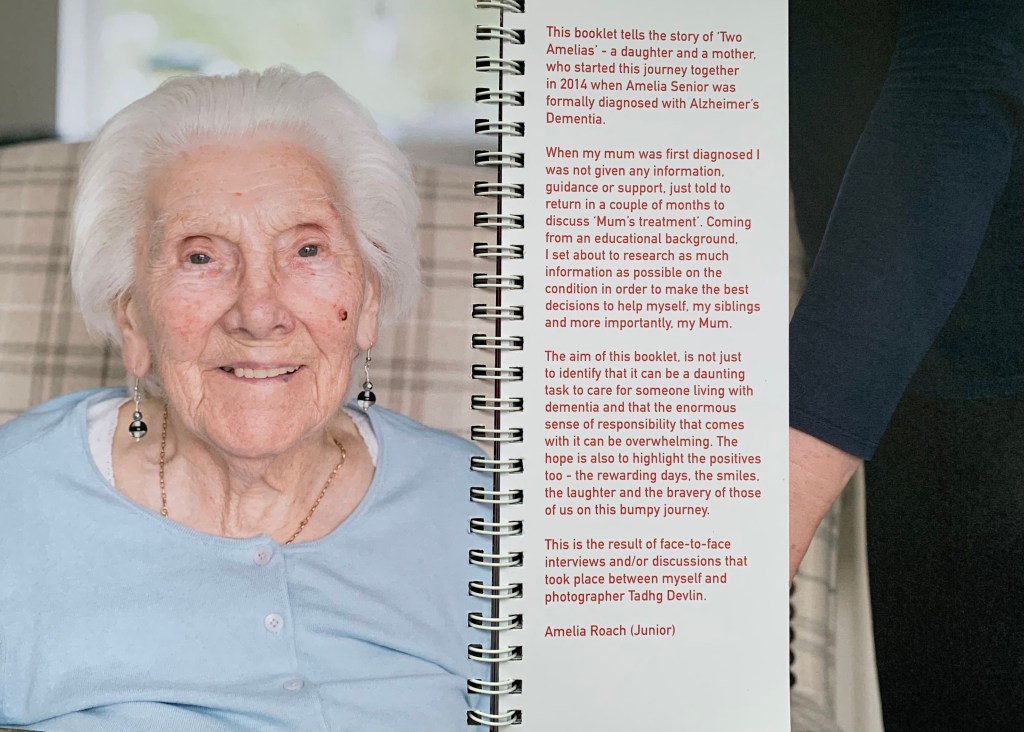 This booklet tells the story of ‘Two
Amelias’ - a daughter and a mother,
who started this journey together
in 2014 when Amelia Senior was
formally diagnosed with Alzheimer’s
Dementia.
When my mum was first diagnosed I
was not given any information,
guidance or support, just told to
return in a couple of months to
discuss ‘Mum’s treatment’. Coming
from an educational background,
I set about to research as much
information as possible on the
condition in order to make the best
decisions to help myself, my siblings
and more importantly, my Mum.
The aim of this booklet, is not just
to identify that it can be a daunting
task to care for someone living with
dementia and that the enormous
sense of responsibility that comes
with it can be overwhelming. The
hope is also to highlight the positives
too - the rewarding days, the smiles,
the laughter and the bravery of those
of us on this bumpy journey.
This is the result of face-to-face
interviews and/or discussions that
took place between myself and
photographer Tadhg Devlin.
Amelia Roach (Junior)